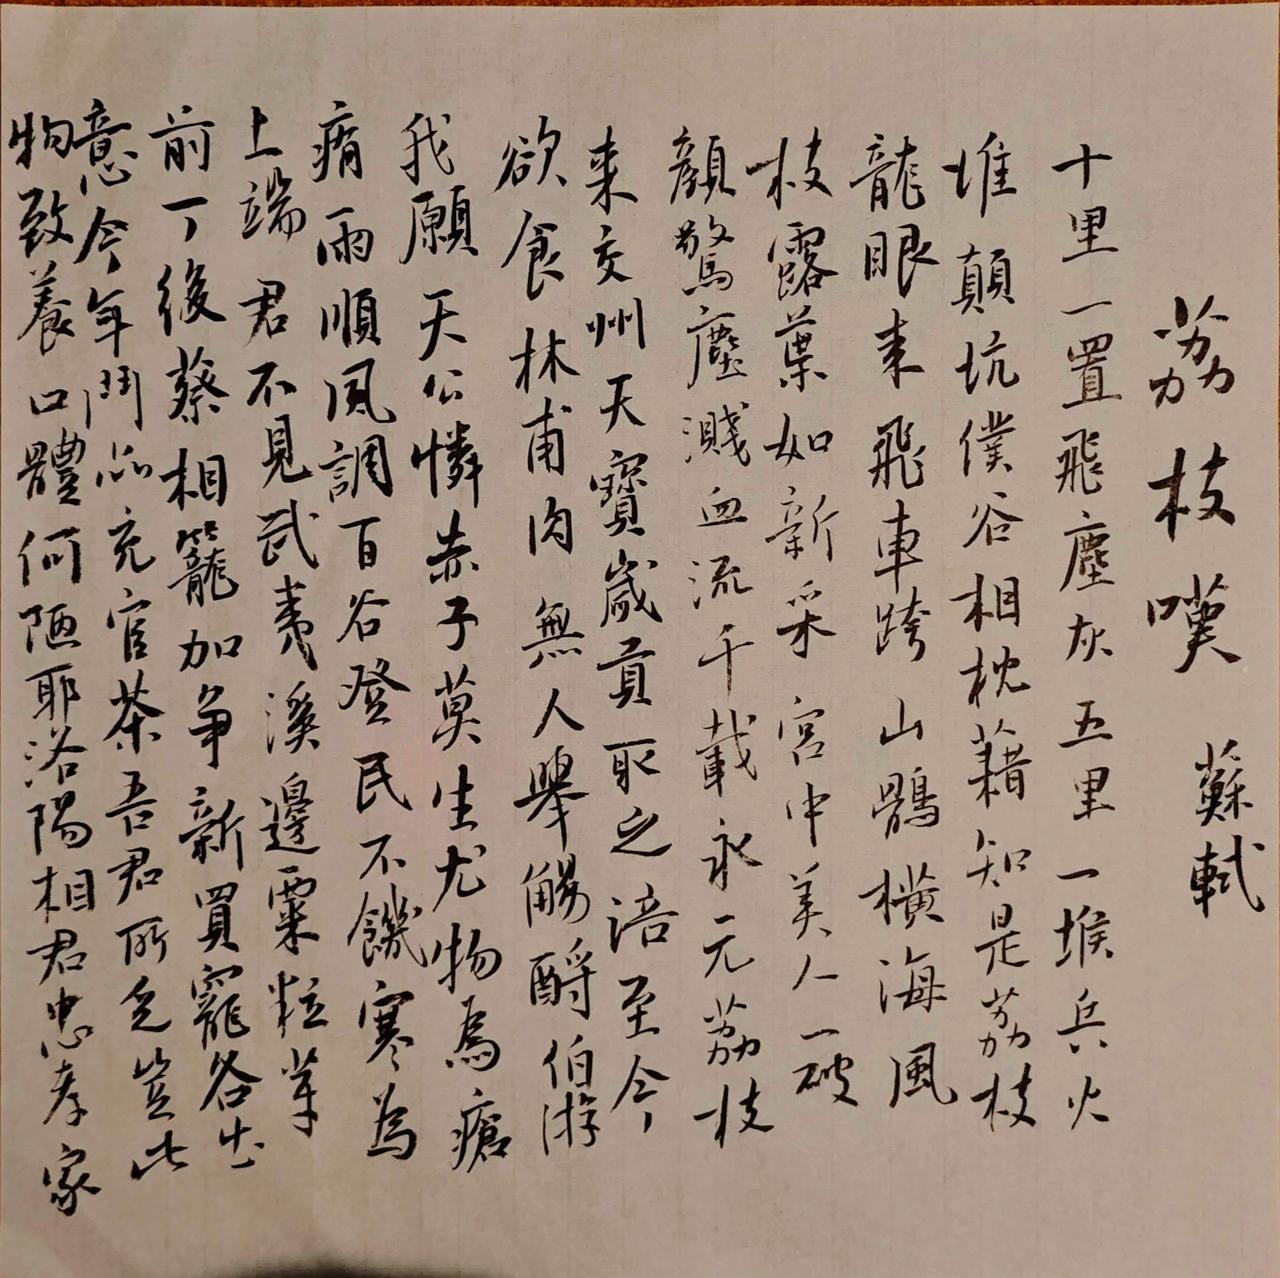 荔枝嘆 蘇軾
十里一置飛塵灰五里一堠兵火
堆顛坑僕谷相枕藉知是荔枝
龍眼来飛車跨山鶻橫海風
枝露葉如新采宮中美人一破
顏驚塵濺血流千載永元荔枝
来交州天寶歲貢取之涪至今
欲食林甫肉無人舉觴酹伯游
我願天公憐赤子莫生尤物為瘡
痏雨順風調百谷登民不饑寒為
上端君不見武夷溪邊粟粒芽
前丁後蔡相籠加争新買寵各出
意今年鬥品充官茶吾君所乏豈此
物致養口體何陋耶洛陽相君忠孝家